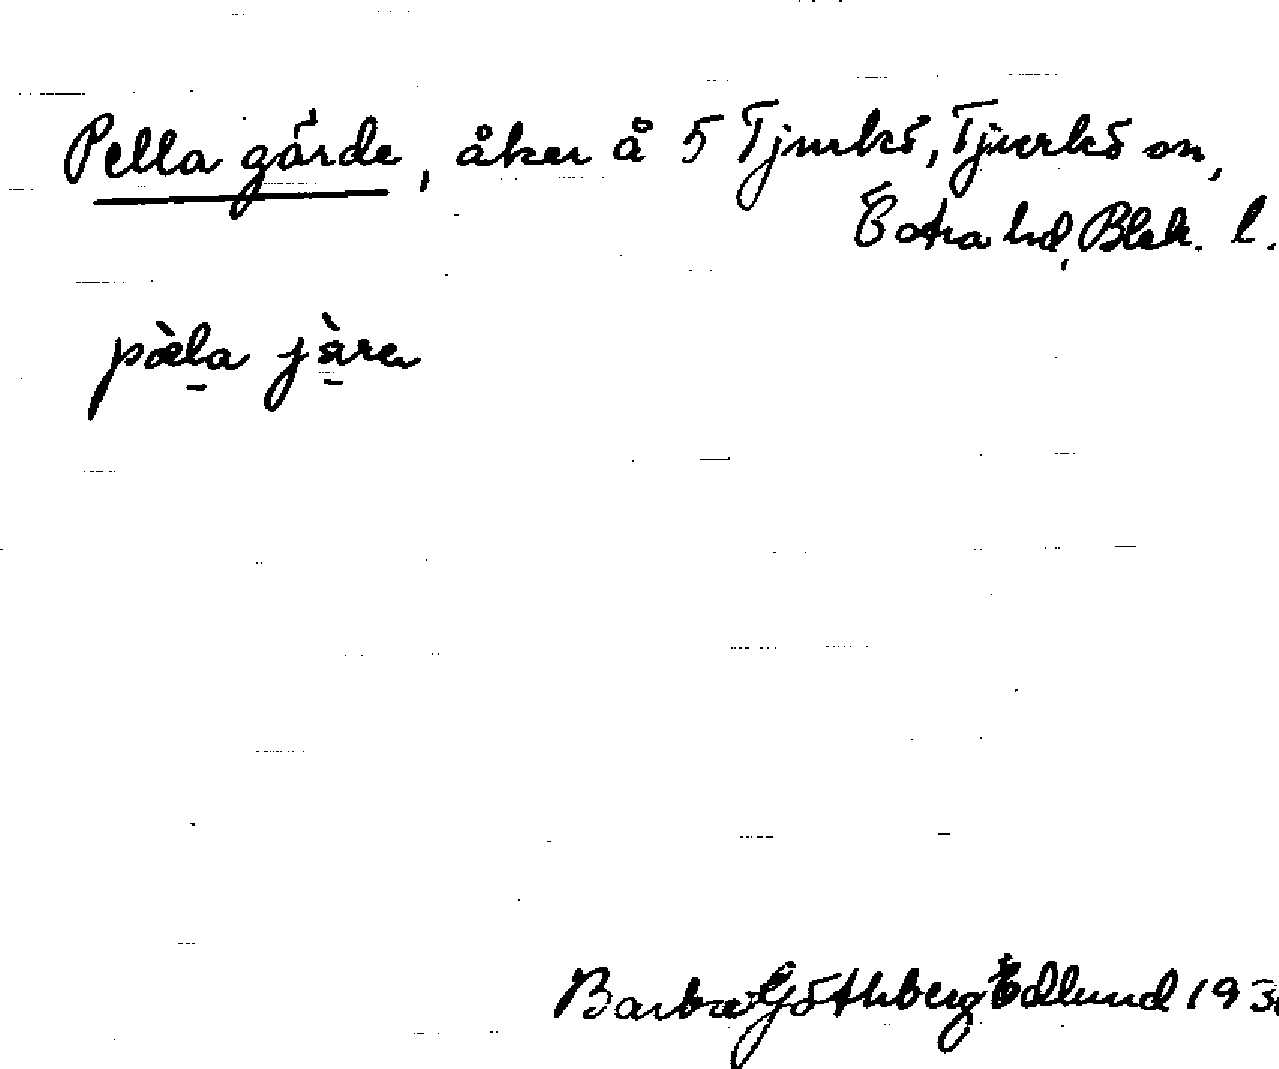 Pella gärde, åker å 5 Tjurkö, Tjurkö sn,
Östra hd, Blek. l.
pæ̀la jàre
Barbro Göthberg Edlund 193